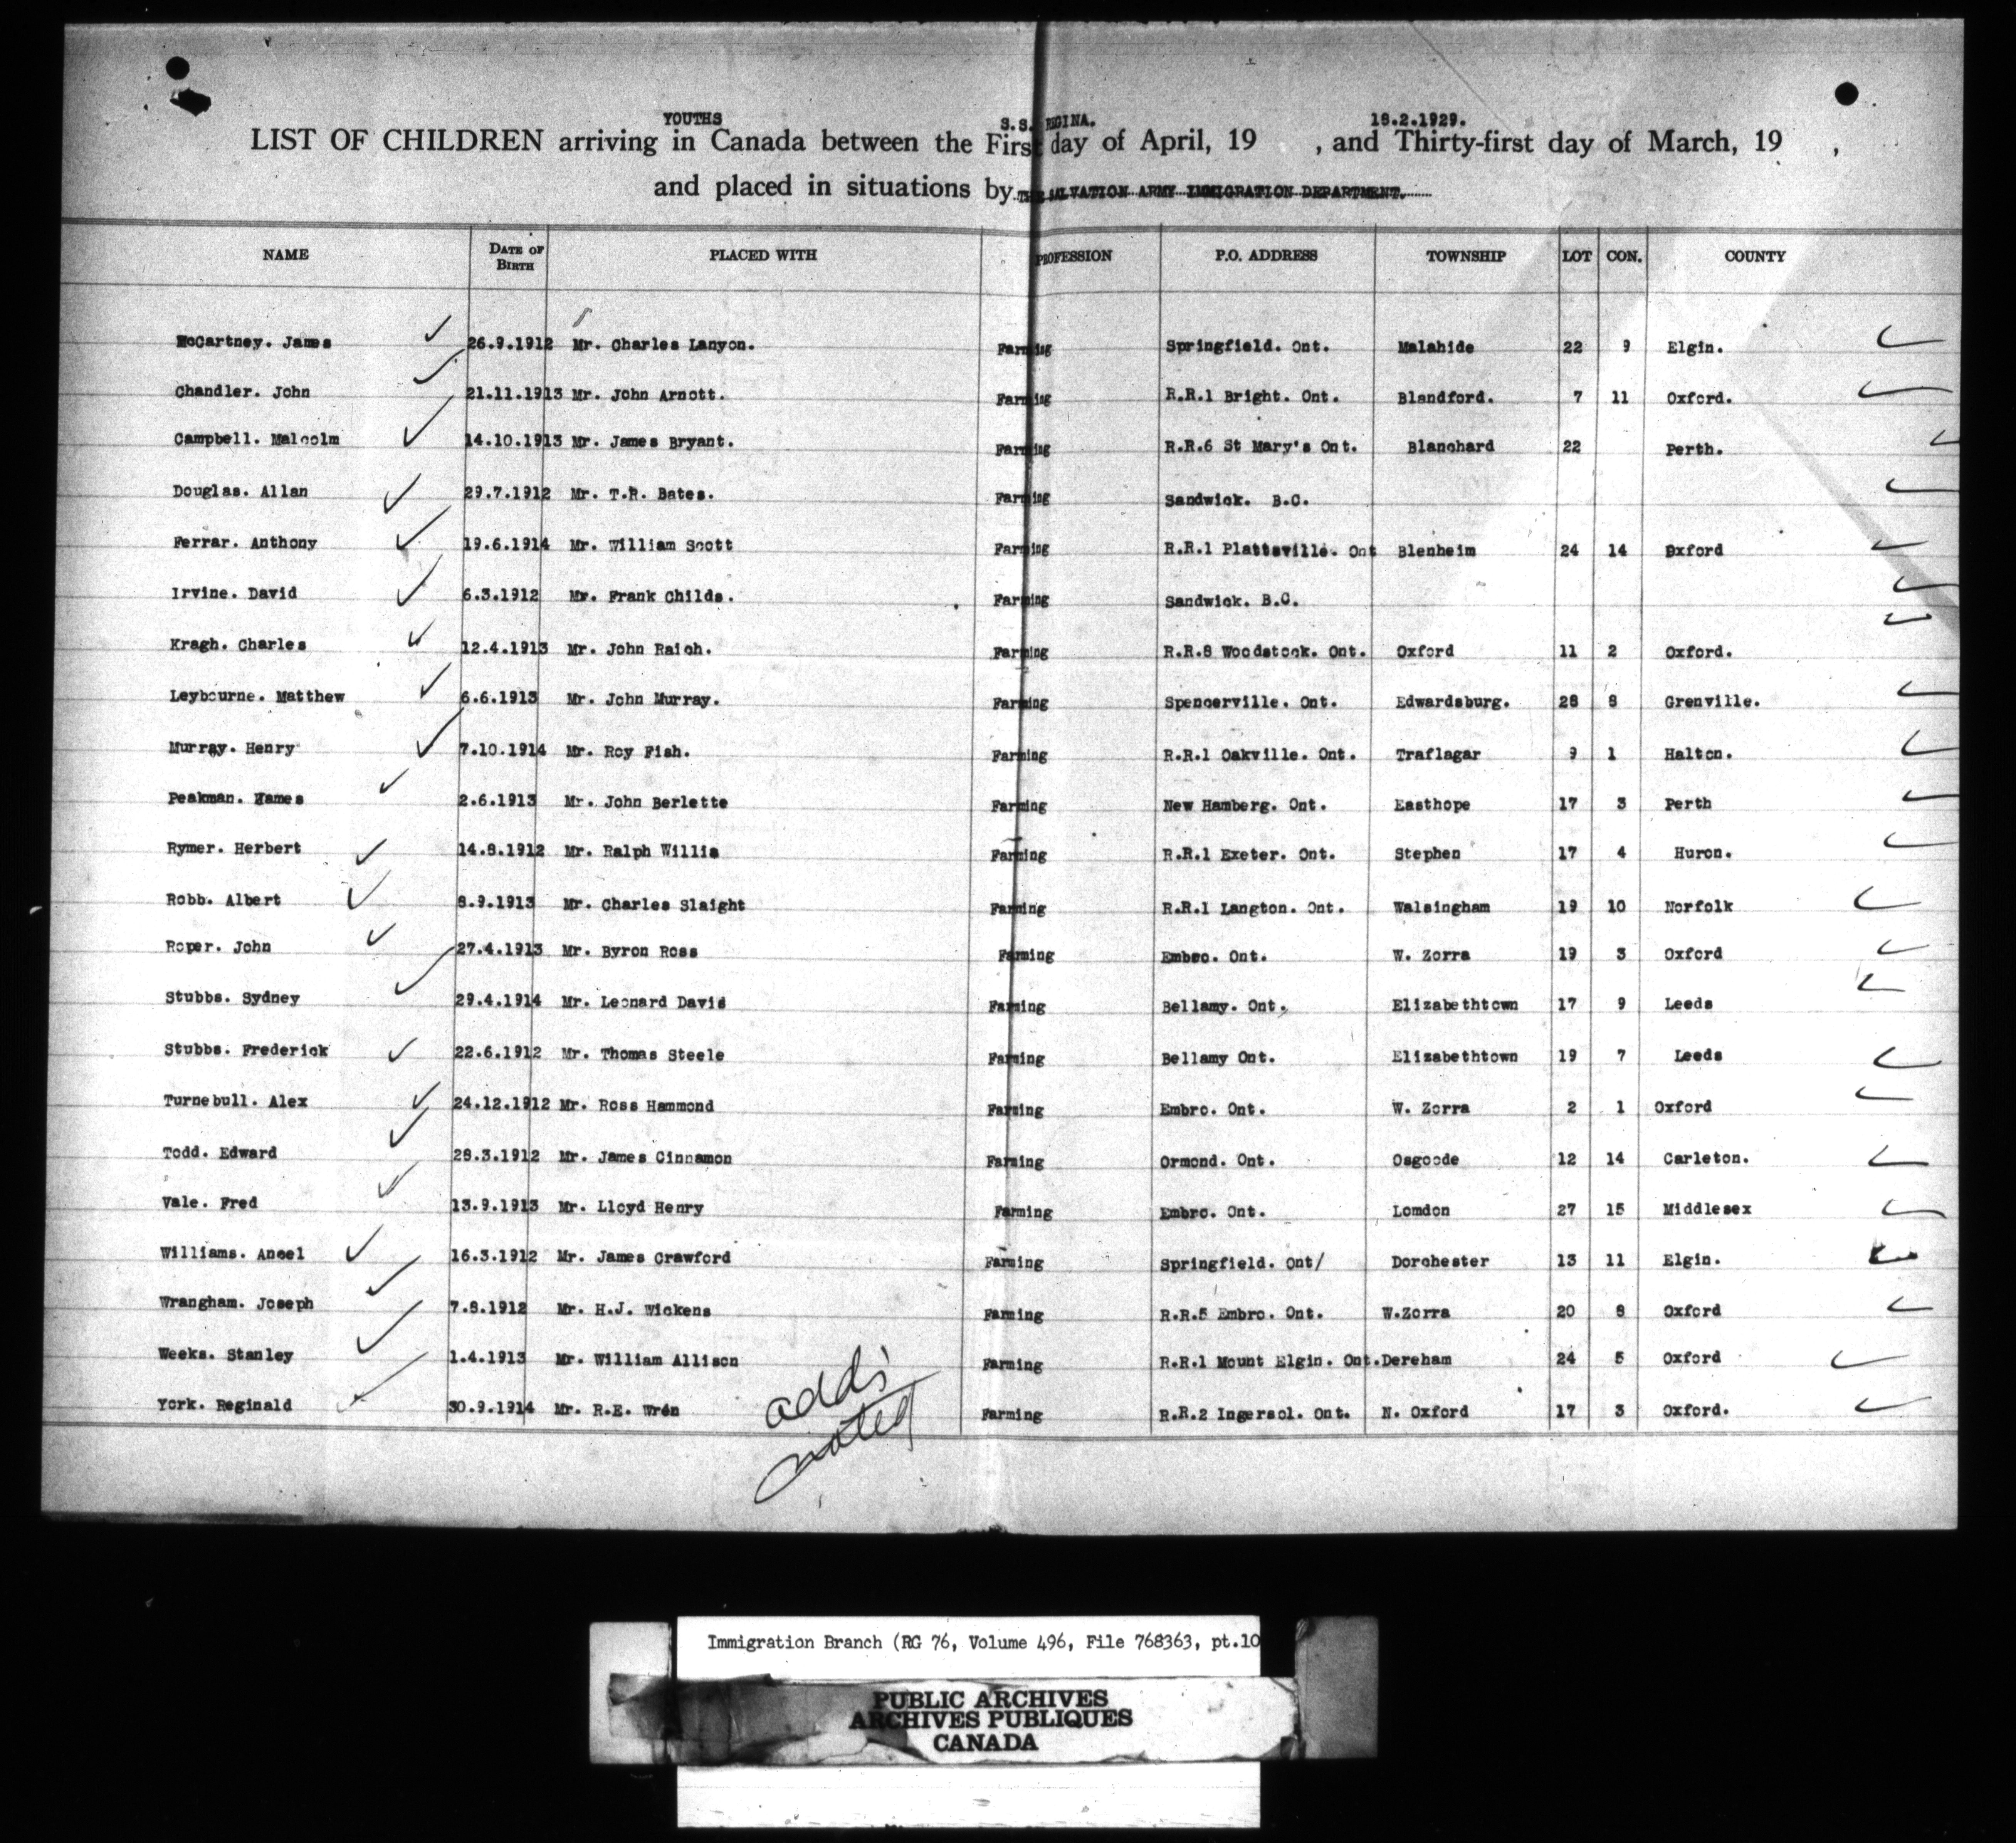 YOUTHS S.S. REGINA. 18.2.1929.
LIST OF CHILDREN arriving in Canada between the First day of April, 19 , and Thirty-first day of March, 19 ,
and placed in situations by THE SALVATION ARMY IMMIGRATION DEPARTMENT.
NAME DATE OF BIRTH PLACED WITH PROFESSION P.O. ADDRESS TOWNSHIP LOT CON. COUNTY
McCartney. James 26.9.1912 Mr. Charles Lanyon. Farming Springfield. Ont. Malahide 22 9 Elgin.
Chandler. John 21.11.1913 Mr. John Arnott. Farming R.R.1 Bright. Ont. Blandford. 7 11 Oxford.
Campbell. Malcolm 14.10.1913 Mr. James Bryant. Farming R.R.6 St Mary's Ont. Blanchard 22 Perth.
Douglas. Allan 29.7.1912 Mr. T.R. Bates. Farming Sandwick. B.C.
Ferrar. Anthony 19.6.1914 Mr. William Scott Farming R.R.1 Plattsville. Ont Blenheim 24 14 Oxford
Irvine. David 6.3.1912 Mr. Frank Childs. Farming Sandwick. B.C.
Kragh. Charles 12.4.1913 Mr. John Raich. Farming R.R.8 Woodstock. Ont. Oxford 11 2 Oxford.
Leybourne. Matthew 6.6.1913 Mr. John Murray. Farming Spencerville. Ont. Edwardsburg. 28 8 Grenville.
Murray. Henry 7.10.1914 Mr. Roy Fish. Farming R.R.1 Oakville. Ont. Traflagar 9 1 Halton.
Peakman. James 2.6.1913 Mr. John Berlette Farming New Hamberg. Ont. Easthope 17 3 Perth
Rymer. Herbert 14.8.1912 Mr. Ralph Willis Farming R.R.1 Exeter. Ont. Stephen 17 4 Huron.
Robb. Albert 8.9.1913 Mr. Charles Slaight Farming R.R.1 Langton. Ont. Walsingham 19 10 Norfolk
Roper. John 27.4.1913 Mr. Byron Ross Farming Embro. Ont. W. Zorra 19 3 Oxford
Stubbs. Sydney 29.4.1914 Mr. Leonard David Farming Bellamy. Ont. Elizabethtown 17 9 Leeds
Stubbs. Frederick 22.6.1912 Mr. Thomas Steele Farming Bellamy Ont. Elizabethtown 19 7 Leeds
Turnebull. Alex 24.12.1912 Mr. Ross Hammond Farming Embro. Ont. W. Zorra 2 1 Oxford
Todd. Edward 28.3.1912 Mr. James Cinnamon Farming Ormond. Ont. Osgoode 12 14 Carleton.
Vale. Fred 13.9.1913 Mr. Lloyd Henry Farming Embro. Ont. Lomdon 27 15 Middlesex
Williams. Ansel 16.3.1912 Mr. James Crawford Farming Springfield. Ont/ Dorchester 13 11 Elgin.
Wrangham. Joseph 7.8.1912 Mr. H.J. Wickens Farming R.R.5 Embro. Ont. W.Zorra 20 8 Oxford
Weeks. Stanley 1.4.1913 Mr. William Allison Farming R.R.1 Mount Elgin. Ont. Dereham 24 5 Oxford
York. Reginald 30.9.1914 Mr. R.E. Wren Farming R.R.2 Ingersol. Ont. N. Oxford 17 3 Oxford.
adds
noted
Immigration Branch (RG 76, Volume 496, File 768363, pt.10
PUBLIC ARCHIVES
ARCHIVES PUBLIQUES
CANADA